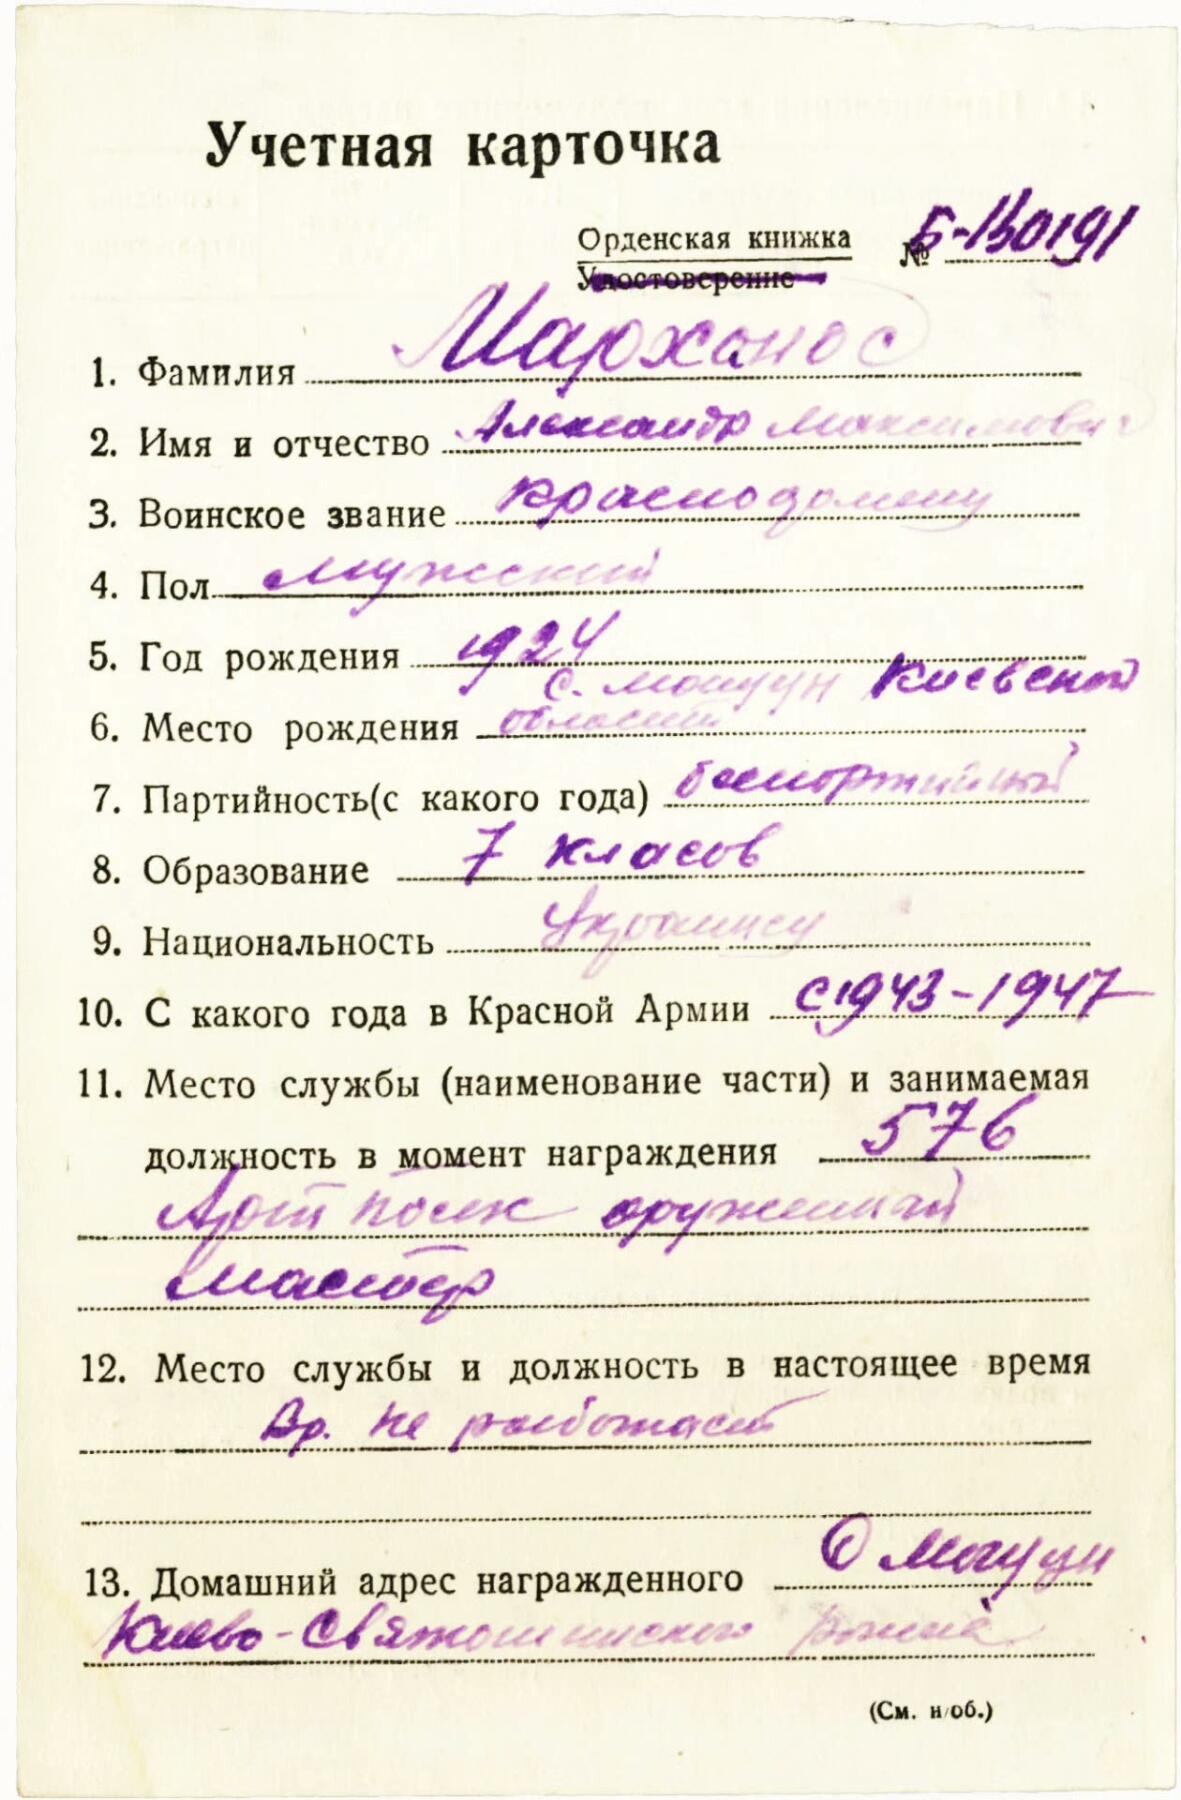 Учетная карточка
Орденская книжка № Б-130191
Удостоверение
1. Фамилия Мархонос
2. Имя и отчество Александр Максимович
3. Воинское звание
4. Пол мужский
5. Год рождения 1924
с. Мощун Киевской
6. Место рождения области
7. Партийность (с какого года) беспортийный
8. Образование 7 класов
9. Национальность Украинец
10. С какого года в Красной Армии с 1943-1947
11. Место службы (наименование части) и занимаемая
должность в момент награждения 576
Арт полк оружейный
мастер
12. Место службы и должность в настоящее время
Вр. не работает
13. Домашний адрес награжденного С Мощун
Киево-Святошинского
(См. н/об.)